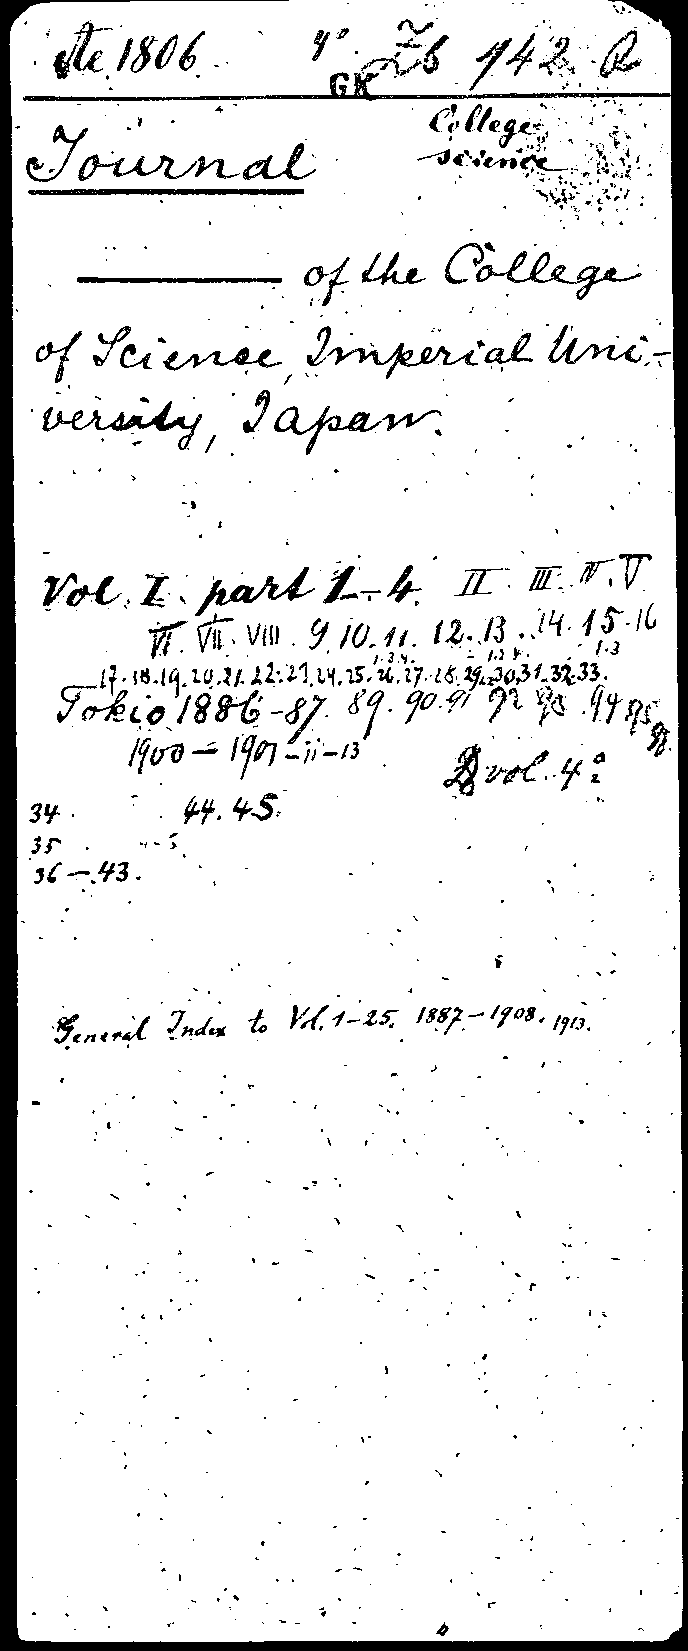 Ac. 1806 4° Zb 142 R
GK
College
science
Journal
of the College
of Science, Imperial Uni-
versity, Japan.
Vol. I. part 1-4. II. III. IV. V
VI. VII. VIII. 9. 10. 11. 12. 13. 14. 15. 16
17. 18. 19. 20. 21. 22. 23. 24. 25. 26. 27. 28. 29. 30. 31. 32. 33.
Tokio 1886-87. 89. 90. 91 92 93. 94 95
1900 - 1901 - 11 - 13
vol. 4°
34. 44. 45.
35
36 - 43.
General Index to Vol. 1-25. 1887-1908. 1913.